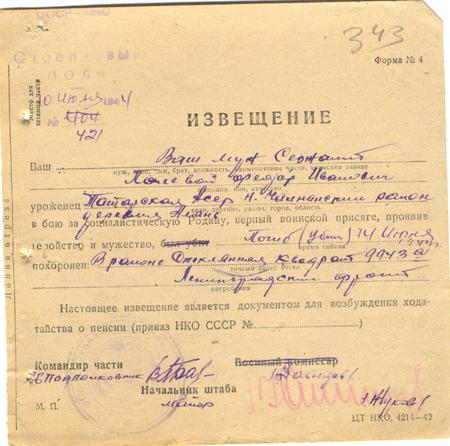 343
Форма № 4
Стрелковый
полк
Место для
штампа части
Июля 1944
№ 404
421
ИЗВЕЩЕНИЕ
Ваш Ваш муж Сержант
муж, сын, брат, должность, наименование части, воинское звание
Полевой Федор Иванович
фамилия, имя, отчество
уроженец Татарская Асср Н
область, район, город
деревня
в бою за социалистическую Родину, верный воинской присяге, проявив
геройство и мужество, был убит Погиб (Убит) 14 Июня
время гибели
1944
похоронен: В районе квадрат 9943
точный адрес места
Ленинградский фронт
погребения
Настоящее извещение является документом для возбуждения хода-
тайства о пенсии (приказ НКО СССР №)
Командир части
Подполковник
Военный комиссар
Начальник штаба
майор
М. П.
Жуков
ЦТ НКО. 4214—42
Линия отреза